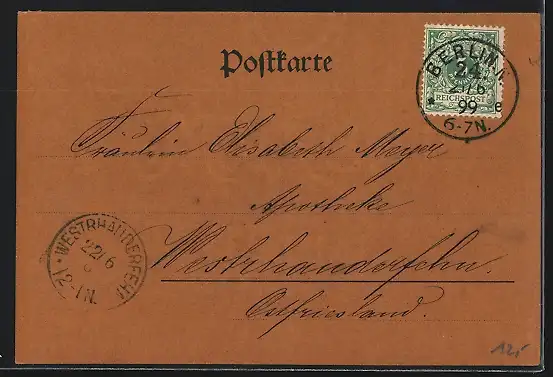 Postkarte
BERLIN
24
21/6
99 e
6-7N.
REICHSPOST
Fräulein Elisabeth Meyer
Apotheke
Westrhauderfehn.
Ostfriesland.
WESTRHAUDERFEHN
22/6
12-1N.